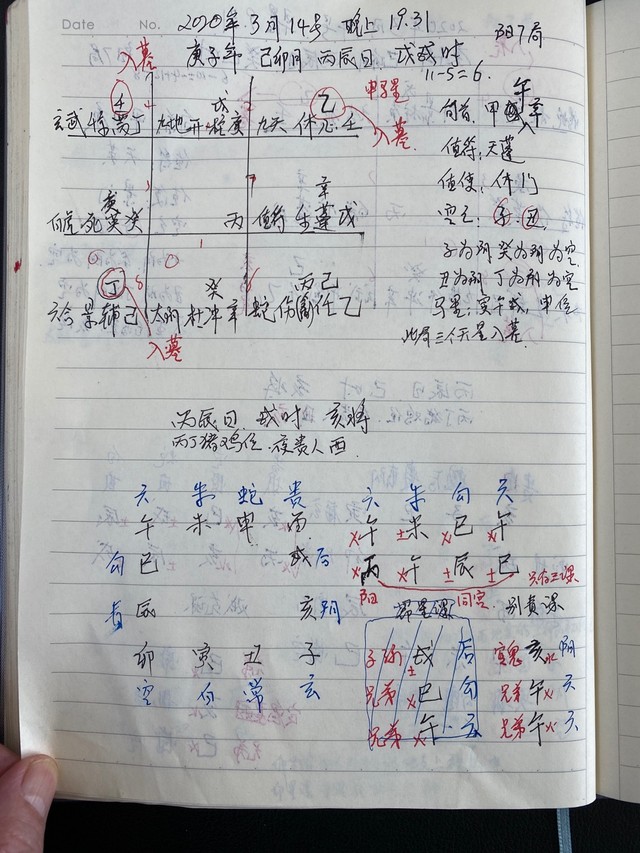 Date No.
2020年3月14号 晚上 19.31 阳7局
庚子年 己卯月 丙辰日 戊戌时
11-5=6.
入墓
戊
乙
入墓
旬首:甲午辛
玄武 丁 九地开 庚 九天 休 壬
值符:天蓬
值使:休门
空亡:
庚 辛
死英癸 丙 值符生蓬戊
子为刑癸为刑为空
丑为刑丁为刑为空
马星:寅午戌,申位
此局三个天星入墓.
丁 癸 丙己
六合景辅己 太阴杜冲辛 蛇伤任乙
入墓
丙辰日 戌时 亥将
丙丁猪鸡位 夜贵人酉
六 朱 蛇 贵 六 朱 勾 六
午 未 申 酉 午 未 巳 午
勾 巳 戌 后 丙 午 辰 巳
只有三课
阳
青 辰 亥 阴 昴星课 别责课
卯 寅 丑 子 子孙 戌 后 官鬼 亥水 阴
空 白 常 玄 兄弟 巳 勾 兄弟 午火 六
兄弟 午 六 兄弟 午火 六